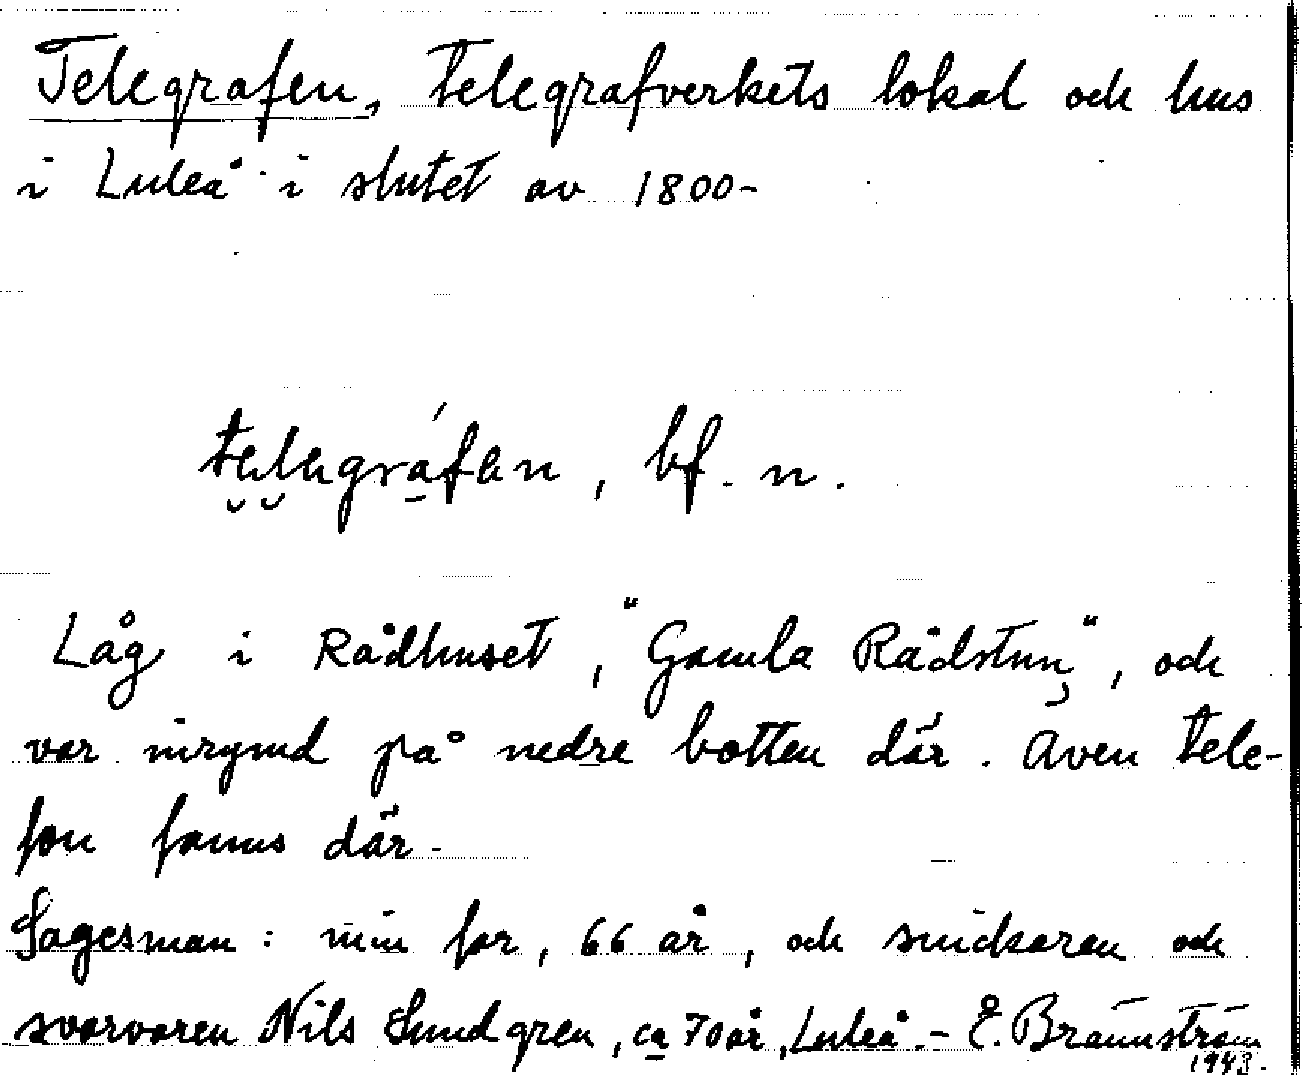 Telegrafen, telegrafverkets lokal och hus
i Luleå i slutet av 1800-
telegráfen, bf. n.
Låg i Rådhuset, "Gamla Rådstun", och
var inrymd på nedre botten där. Även tele-
fon fanns där.
Sagesman: min far, 66 år, och snickaren och
svarvaren Nils Sundgren, ca 70 år, Luleå. - E. Brännström
1943.